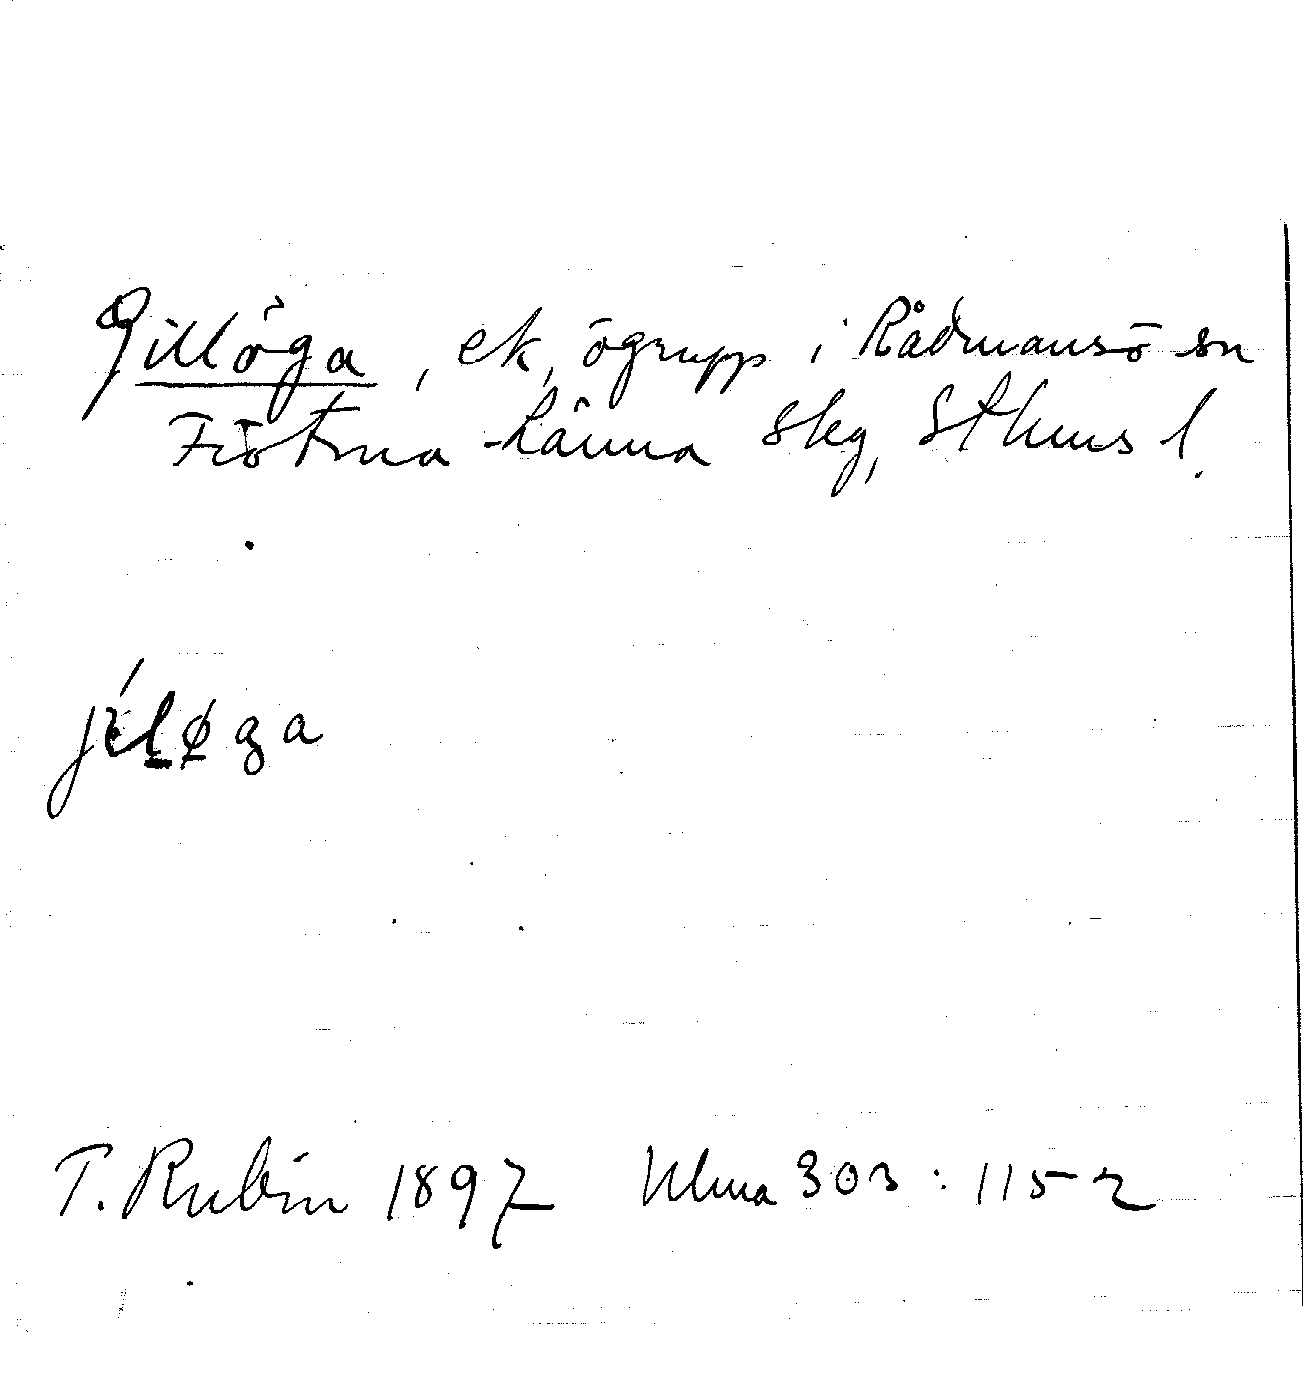 Gillöga, ek, ögrupp i Rådmansö sn
Frötuna - Länna Skg, Sthms l.
jíløga
T. Rubin 1897 Ulma 303:1152